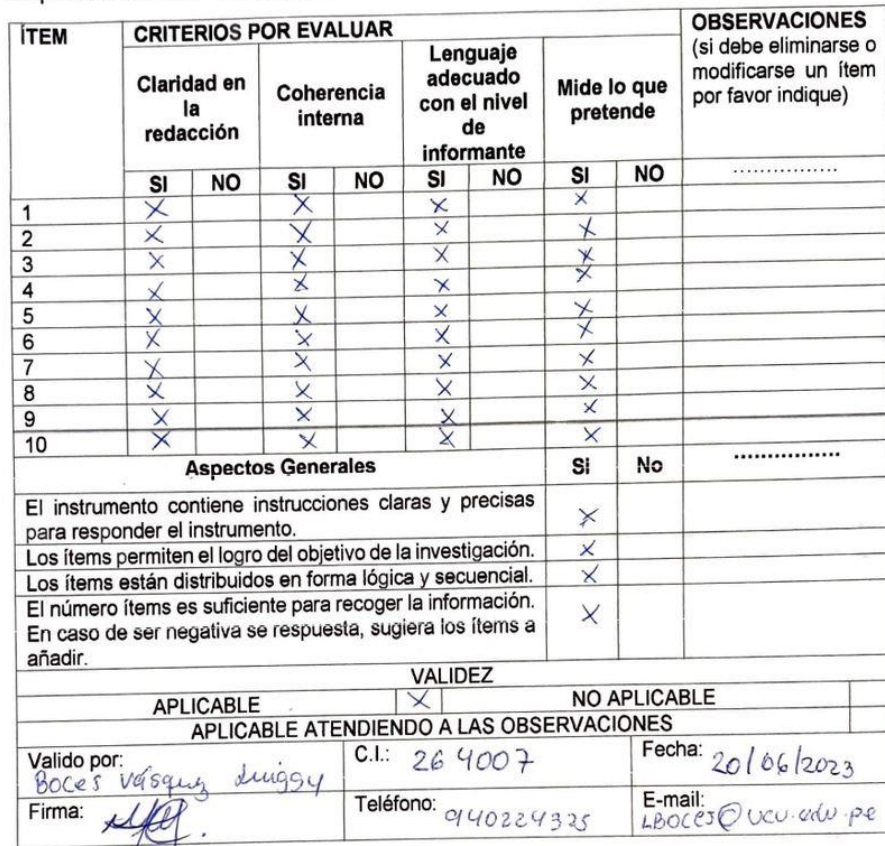 ÍTEM CRITERIOS POR EVALUAR OBSERVACIONES
(si debe eliminarse o
modificarse un ítem
por favor indique)
Claridad en
la
redacción
Coherencia
interna
Lenguaje
adecuado
con el nivel
de
informante
Mide lo que
pretende
SI NO SI NO SI NO SI NO ................
1 X X X X
2 X X X X
3 X X X X
4 X X X X
5 X X X X
6 X X X X
7 X X X X
8 X X X X
9 X X X X
10 X X X X
Aspectos Generales Si No ................
El instrumento contiene instrucciones claras y precisas
para responder el instrumento. X
Los ítems permiten el logro del objetivo de la investigación. X
Los ítems están distribuidos en forma lógica y secuencial. X
El número ítems es suficiente para recoger la información.
En caso de ser negativa se respuesta, sugiera los ítems a
añadir. X
VALIDEZ
APLICABLE X NO APLICABLE
APLICABLE ATENDIENDO A LAS OBSERVACIONES
Valido por: Boces Vásquez Luiggy
C.I.: 264007
Fecha: 20/06/2023
Firma:
Teléfono: 940224325
E-mail: LBOCES@ucv.edu.pe